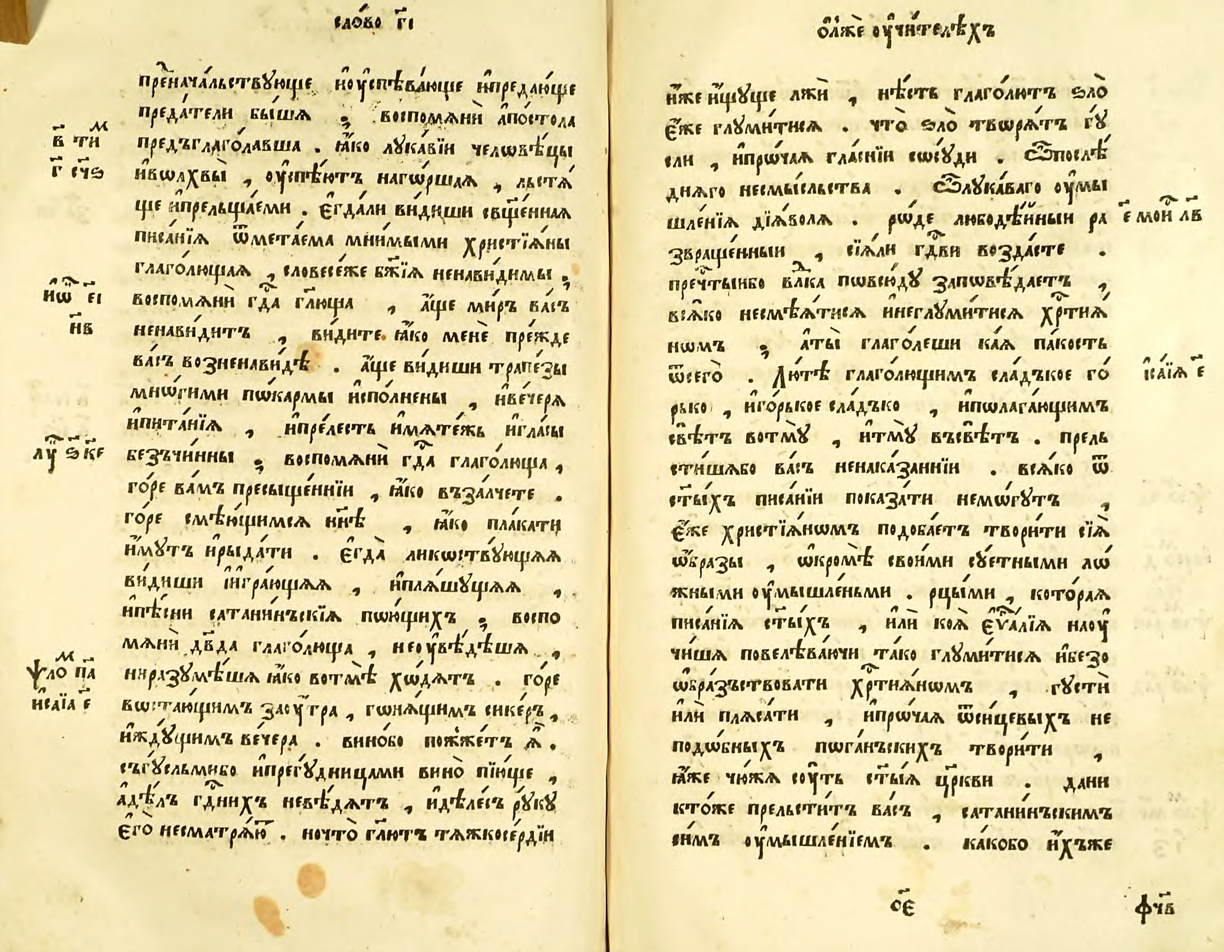 сло́во г҃і
пре́нача́льствꙋюще и҆оуспѣва́юще и҆предаю́ще
преда́тели бы́шѧ ; воспомѧнѝ а҆по́стола
в҃ ти м
предъглаго́лавша . ꙗ҆́ко лꙋка́вїи человѣ́цы
г҃ сч҃ѕ
и҆вѡлхвы̀ , оу҆спѣ́ютъ наго́ршаѧ , льстѧ́
ще и҆прельща́еми . є҆гда́ли ви́диши сщ҃е́ннаѧ
писа́нїѧ ѿмета́ема мни́мыми христїѧ́ны
глаго́лющаѧ , словесе́же бж҃їѧ ненави́димы ;
и҆ѡ҃ є҃і
воспомѧнѝ гд҃а гл҃юща , а҆́ще ми́ръ ва́съ
н҃в
ненави́дитъ , ви́дите ꙗ҆́ко менѐ пре́жде
ва́съ возненави́дѣ . а҆́ще ви́диши трапе́зы
мнѡ́гими пѡка́рмы и҆спо́лнены , и҆вече́рѧ
и҆пита́нїѧ , и҆пре́лесть и҆мѧте́жь и҆гла́сы
лꙋ҃ ѕ҃ к҃е
безъчи́нны ; воспомѧнѝ гд҃а глаго́люща ,
го́ре ва́мъ пресыще́ннїи , ꙗ҆́ко възалчете .
го́ре смѣю́щимсѧ нн҃ѣ , ꙗ҆́ко пла́кати
и҆́мꙋтъ и҆рыда́ти . є҆гда̀ ликѡ́ствꙋющѧѧ
ви́диши и҆игра́ющѧѧ , и҆плѧ́шꙋщѧѧ ,
и҆пѣ́сни сатани́ньскїѧ пѡю́щихъ ; воспо
мѧнѝ дв҃да глаго́люща , неоу҆вѣ́дѣшѧ ,
ѱ҃ло п҃а м
ниразꙋмѣ́шѧ ꙗ҆́ко вотмѣ̀ хѡ́дѧтъ . го́ре
и҆са́їа є҃
вѡстаю́щимъ заоу҆́тра , гѡнѧ́щимъ сике́ръ ,
и҆ждꙋ́щимъ ве́чера . вино́бо по́жжетъ ѧ҆̀ .
съгꙋ́сльмибо и҆прегꙋ́дницами вино̀ пїю́ще ,
а҆дѣ́лъ гд҃нихъ невѣ́дѧтъ , и҆дѣле́съ рꙋкꙋ̀
є҆гѡ̀ несматрѧ́ю҃т . ночто̀ гл҃ютъ тѧжкосе́рдїи
о҆лже оу҆чи́телѣхъ
и҆́же и҆́щꙋще лжѝ , нѣ́сть глаго́лютъ ѕло̀
є҆́же глꙋми́тисѧ . что̀ ѕло̀ творѧ́тъ гꙋ́
сли , и҆про́чаѧ гла́снїи сѡсꙋ́ди . ѿпослѣ́
днѧго несмы́сльства . ѿлꙋка́ваго оу҆мы
шле́нїѧ дїѧ́волѧ . рѡ́де любодѣ́йныи ра
є҆ мой л҃в
звраще́нныи , сїѧ́ли гд҃ви возда́сте .
пречт҃ыибо влк҃а пѡвсю́дꙋ запѡвѣ́даетъ ,
всѧ́ко несмѣѧ́тисѧ и҆неглꙋми́тисѧ хр҃тиѧ́
нѡмъ ; а҆ты̀ глаго́леши ка́ѧ па́кость
ѿсего̀ . Лю́тѣ глаго́лющимъ сла́дъкое го́
и҆са́їѧ є҃
рько , и҆го́рькое сла́дъко , и҆пѡлага́ющимъ
свѣ́тъ вотмꙋ̀ , и҆тмꙋ̀ въсвѣ́тъ . прель
сти́шѧбо ва́съ ненака́заннїи . всѧ́ко ѿ
ст҃ы́хъ писа́нїи показа́ти немо́гꙋтъ ,
є҆́же христїѧ́нѡмъ подоба́етъ твори́ти сїѧ̀
ѡ҆́бразы , ѡ҆кромѣ̀ свои́ми сꙋ́етными лѡ́
жными оу҆мышле́ньми . рцы́ми , кото́раѧ
писа́нїѧ ст҃ы́хъ , и҆лѝ ко́ѧ є҆ѵ҃а́лїѧ наоу҆
чи́шѧ повелѣва́ючи та́ко глꙋми́тисѧ и҆безо
ѡ҆бра́зъствовати хр҃тиѧ́нѡмъ , гꙋстѝ
и҆лѝ плѧса́ти , и҆про́чаѧ ѿсицевы́хъ не
подѡ́бныхъ пѡга́ньскихъ твори́ти ,
ꙗ҆́же чю́жѧ сꙋ́ть ст҃ы́ѧ цр҃кви . дани
кто́же прельсти́тъ ва́съ , сатани́ньскимъ
си́мъ оу҆мышле́нїемъ . ка́кобо и҆́хъже
с҃є
ф҃чв